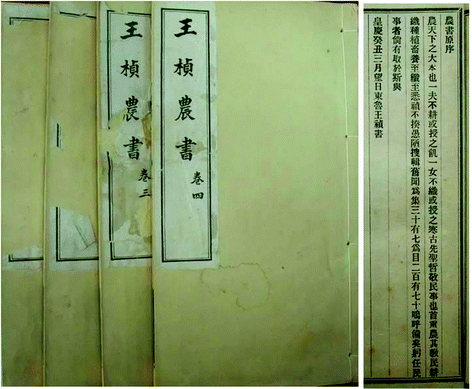 王楨農書
卷四
王楨農書
卷三
農書原序
農天下之大本也一夫不耕或授之飢一女不織或授之寒古先聖哲敬民事也首重農其教民耕
織種植畜養至纖至悉禎不揆愚陋搜輯舊聞為集三十有七為目二百有七十嗚呼備矣躬任民
事者儻有取於斯與
皇慶癸丑三月望日東魯王禎書